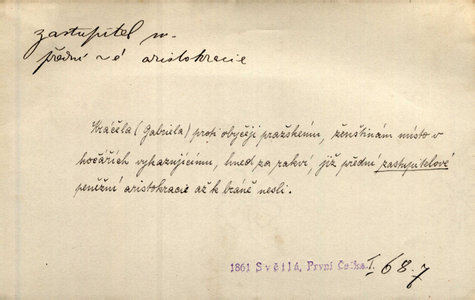 zastupitel m.
přední ~é aristokracie
Kráčela (Gabriela) proti obyčeji pražskému, ženštinám místo v
kočářích vykazujícímu, hned za rakví, již přední zastupitelové
peněžní aristokracie až k bráně nesli.
1861 Světlá, První Češka I. 68.7